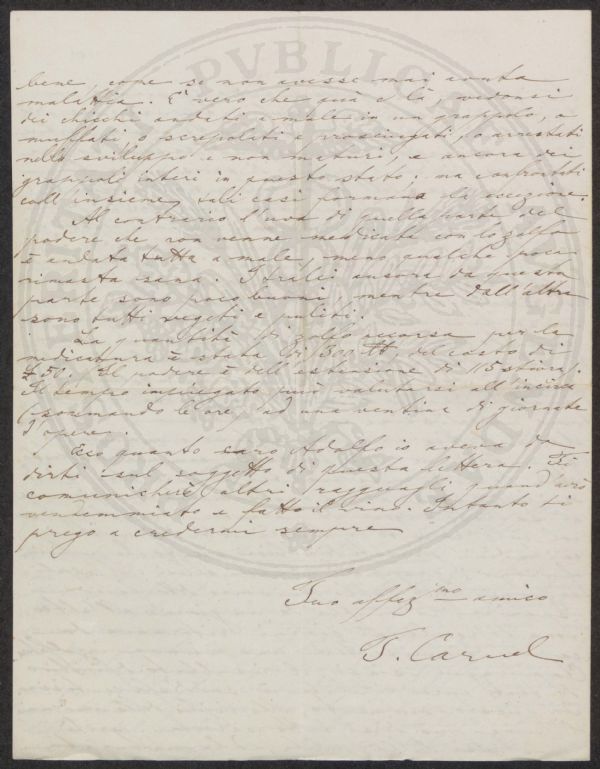 bene, come se non avesse mai avuta
malattia. E' vero che quà e là, vedonsi
dei chicchi andati a male in un grappolo, o
muffati o screpolati e prosciugati, o arrestati
nello sviluppo e non maturi, e ancora dei
grappoli interi in questo stato: ma confrontati
coll'insieme, tali casi formano la eccezione.
Al contrario l'uva di quella parte del
podere che non venne medicata con lo zolfo
è andata tutta a male, meno qualche poca
rimasta sana. I tralci ancora da questa
parte sono poco buoni, mentre dall'altra
sono tutti vegeti e puliti.
La quantità di zolfo occorsa per la
medicatura è stata di 300 tt, del costo di
£ 50. Il podere è dell'estensione di 115 stiora.
Il tempo impiegato può valutarsi all'incirca
(sommando le ore) ad una ventina di giornate
d'opere.
Ecco quanto caro Adolfo io aveva da
dirti sul soggetto di questa lettera. Ti
comunicherò altri ragguagli quand'avrò
vendemmiato e fatto il vino. Intanto ti
prego a credermi sempre
Tuo affez.mo amico
T. Caruel